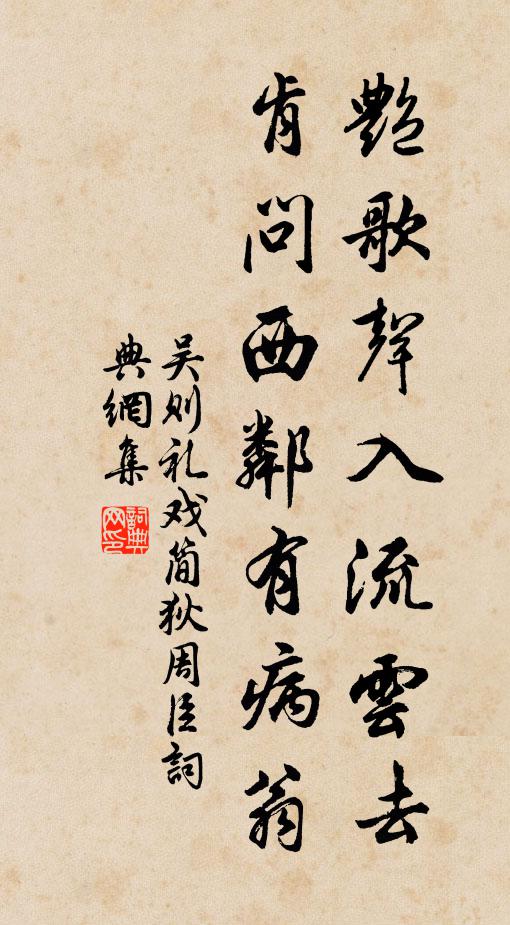 艷歌聲入流雲去
肯問西鄰有病翁
吴则礼戏简狄周臣詞
典網集
詞典網印